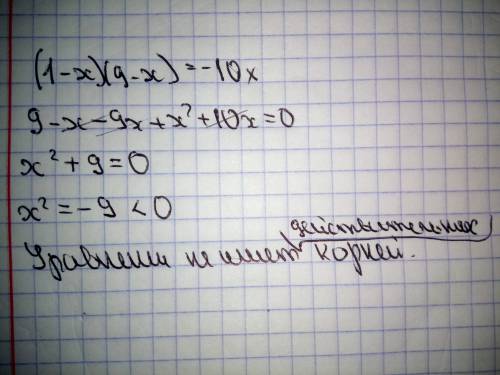 (1-x)(9-x)=-10x
9-x-9x+x²+10x=0
x²+9=0
x²=-9<0
действительных
Уравнение не имеет корней.